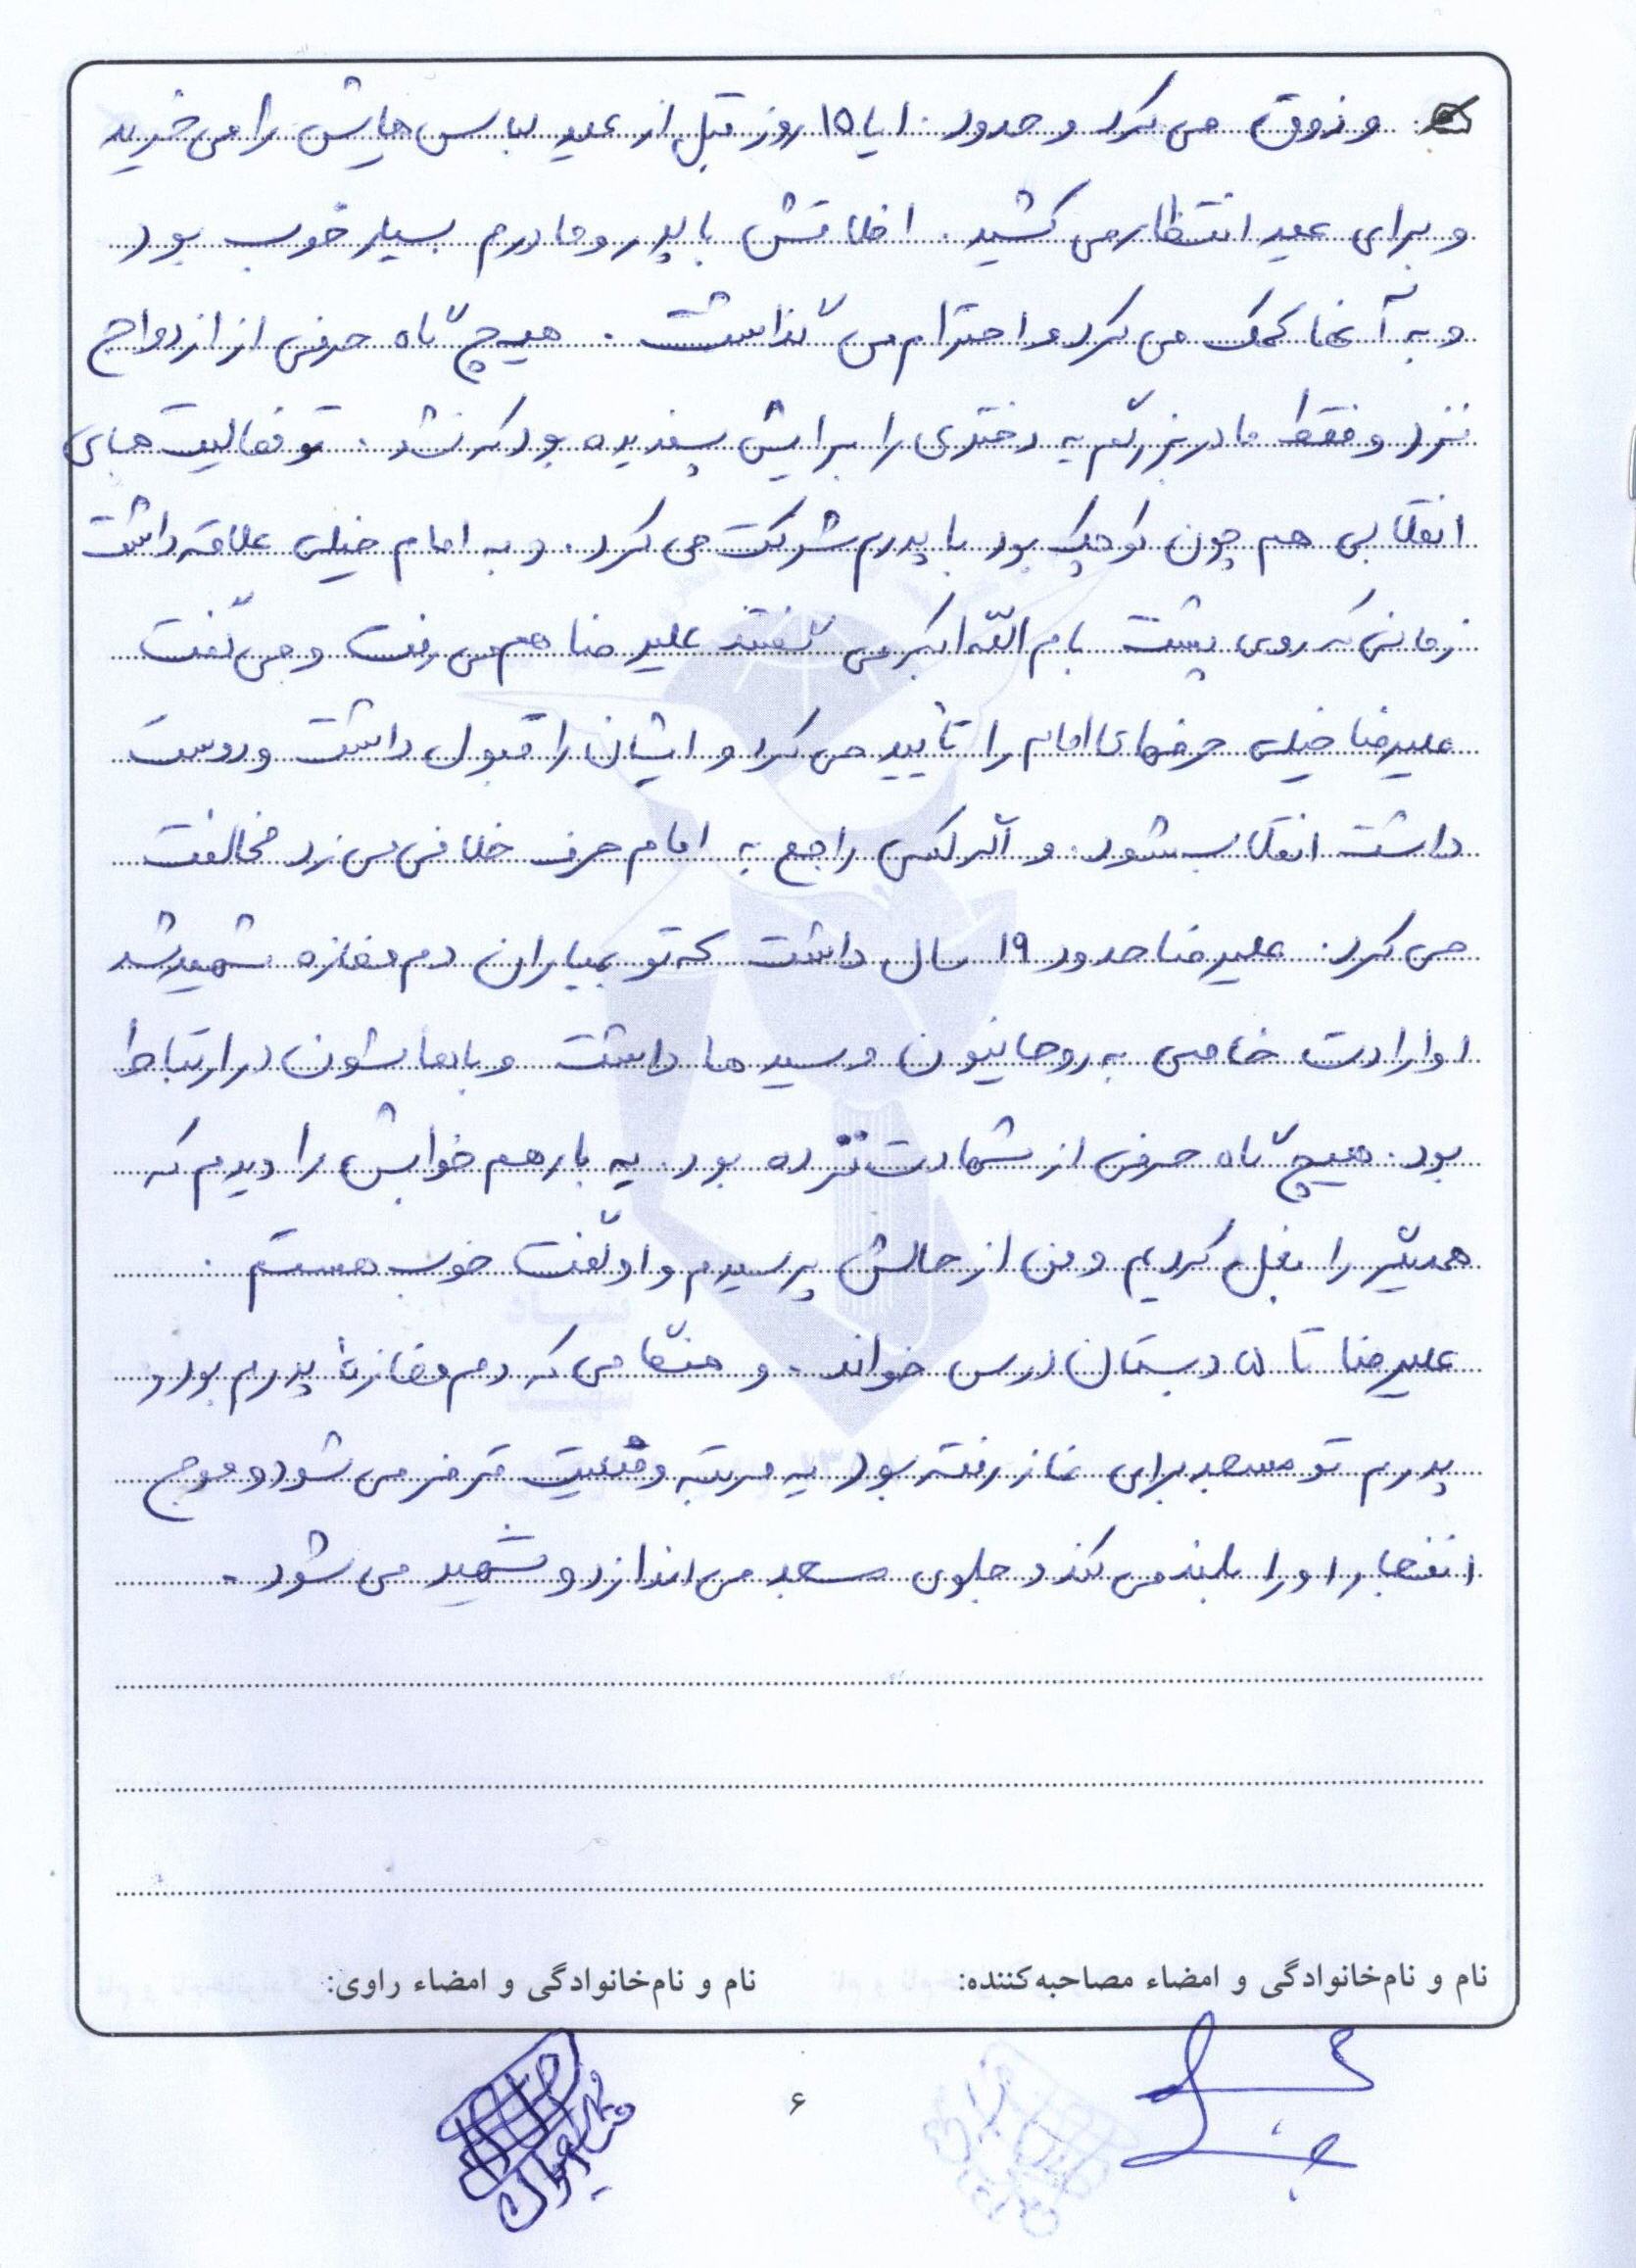 و ذوق می کرد و حدود ۱۰ یا ۱۵ روز قبل از عید لباس هایش را می خرید
و برای عید انتظار می کشید. اخلاقش با پدر و مادرم بسیار خوب بود
و به آنها کمک می کرد و احترام می گذاشت. هیچ گاه حرفی از ازدواج
نزد و فقط مادربزرگم یه دختری را برایش پسندیده بود که نشد. تو فعالیت های
انقلابی هم چون کوچک بود با پدرم شرکت می کرد. و به امام خیلی علاقه داشت
زمانی که روی پشت بام الله اکبر می گفتند علیرضا هم می رفت و می گفت
علیرضا خیلی حرفهای امام را تأیید می کرد و ایشان را قبول داشت و دوست
داشت انقلاب شود. و اگر کسی راجع به امام حرف خلافی می زد مخالفت
می کرد. علیرضا حدود ۱۹ سال داشت که تو بمباران دم مغازه شهید شد
او ارادت خاصی به روحانیون و سید ها داشت و باهاشون در ارتباط
بود. هیچ گاه حرفی از شهادت نزده بود. یه بار هم خوابش را دیدم که
همدیگر را بغل کردیم و من از حالش پرسیدم و او گفت خوب هستم.
علیرضا تا ۵ دبستان درس خواند. و هنگامی که دم مغازهٔ پدرم بود و
پدرم تو مسجد برای نماز رفته بود یه مرتبه وضعیت قرمز می شود و موج
انفجار او را بلند می کند و جلوی مسجد می اندازد و شهید می شود.
نام و نام‌خانوادگی و امضاء مصاحبه‌کننده:
نام و نام‌خانوادگی و امضاء راوی:
۶